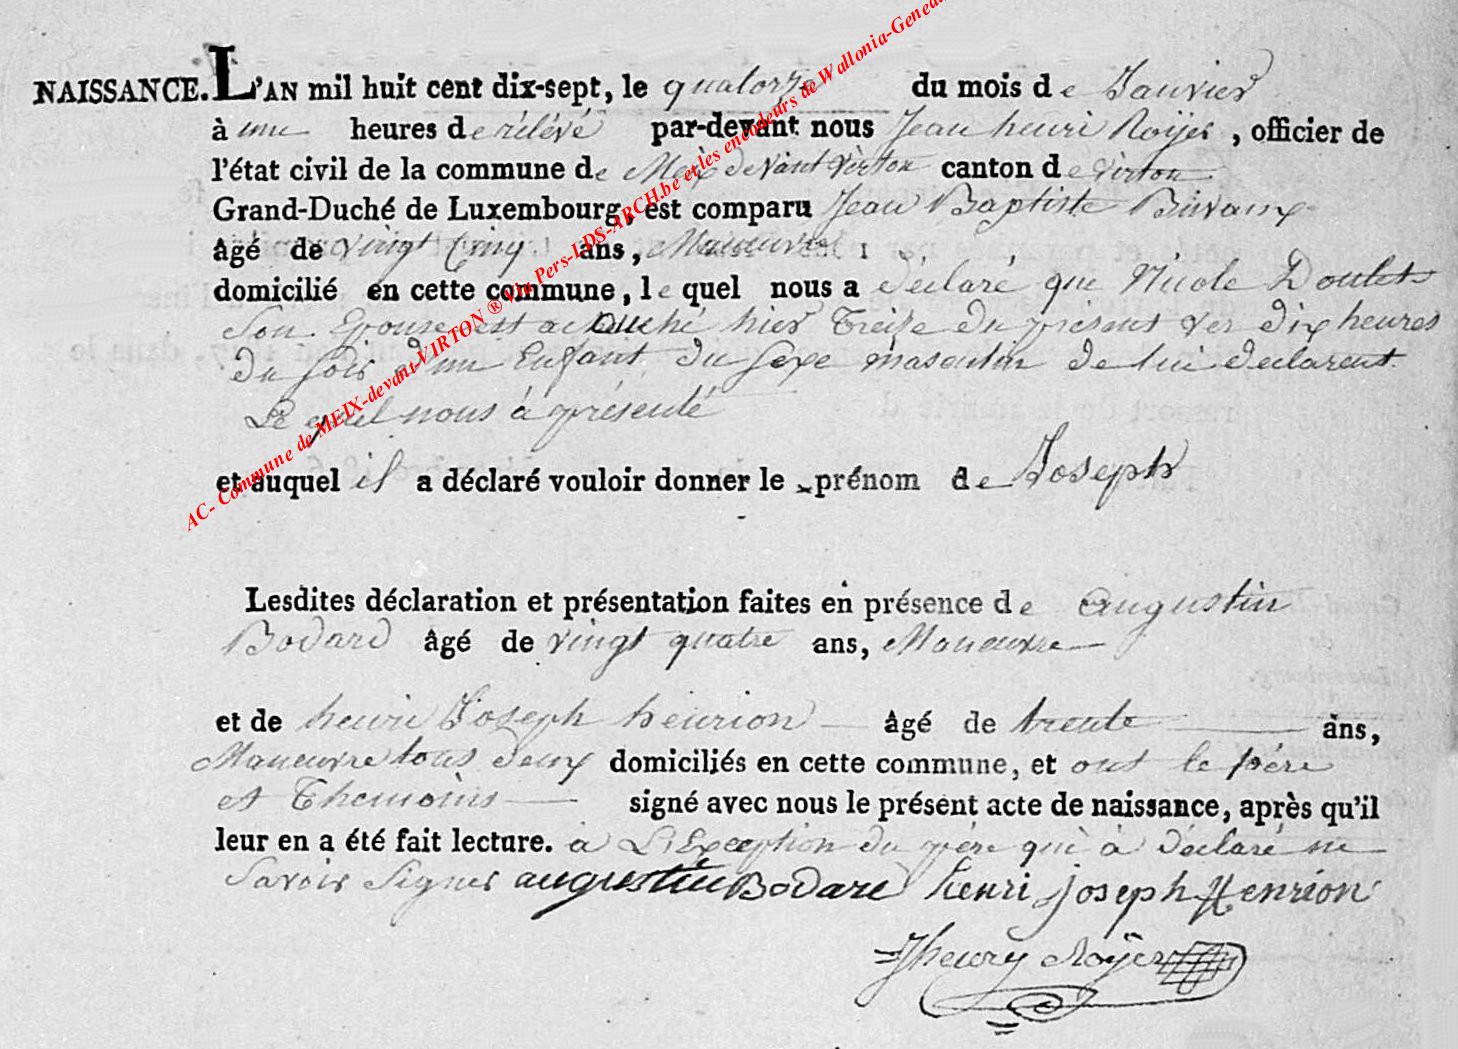 NAISSANCE. L'AN mil huit cent dix-sept, le quatorze du mois de Janvier
à une heures de rélévé par-devant nous Jean henri Roÿer, officier de
l'état civil de la commune de Meix devant virton canton de virton
Grand-Duché de Luxembourg, est comparu Jean Baptiste
âgé de vingt Cinq ans, Maneuvre
domicilié en cette commune, le quel nous a déclaré que Nicole Doulet
Son Epouse est acouché hier Treize du présent ver dix heures
du soir d'un Enfant du Sexe masculin de lui déclarent
Le quel nous à présenté
et auquel il a déclaré vouloir donner le prénom de Joseph
Lesdites déclaration et présentation faites en présence de augustin
Bodard âgé de vingt quatre ans, Maneuvre
et de henri Joseph henrion âgé de trente ans,
Maneuvre tous deux domiciliés en cette commune, et ont le pére
et Themoins signé avec nous le présent acte de naissance, après qu'il
leur en a été fait lecture. à L'Exception du pére qui à déclaré ne
Savoir Signer augustin Bodard henri joseph Henrion
Jhenry Roÿer
AC- Commune de MEIX-devant-VIRTON ® Via Pers-LDS-ARCH.be et les encodeurs de Wallonia-Genea